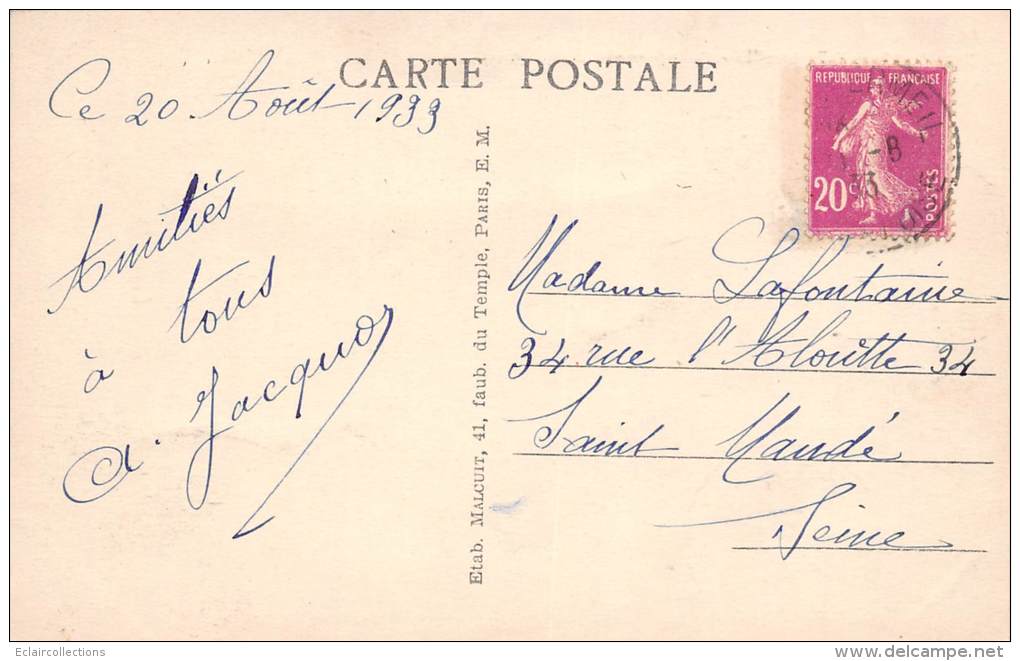 CARTE POSTALE
Ce 20 Août 1933
Amitiés
à tous
A. Jacquot
Etab. MALCUIT, 41, faub. du Temple, PARIS, E. M.
REPUBLIQUE FRANÇAISE
20c
POSTES
-8
33
Madame Lafontaine
34 rue l'Alouëtte 34
Saint Mandé
Seine
Eclaircollections
www.delcampe.net